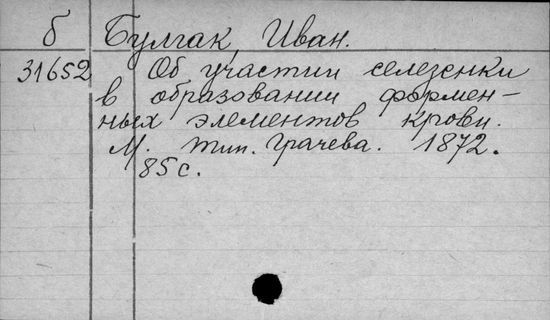 б Булгак, Иван.
31652 Об участии селезенки
в образовании формен-
ных элементов крови.
М. тип. Грачева. 1872.
85 с.